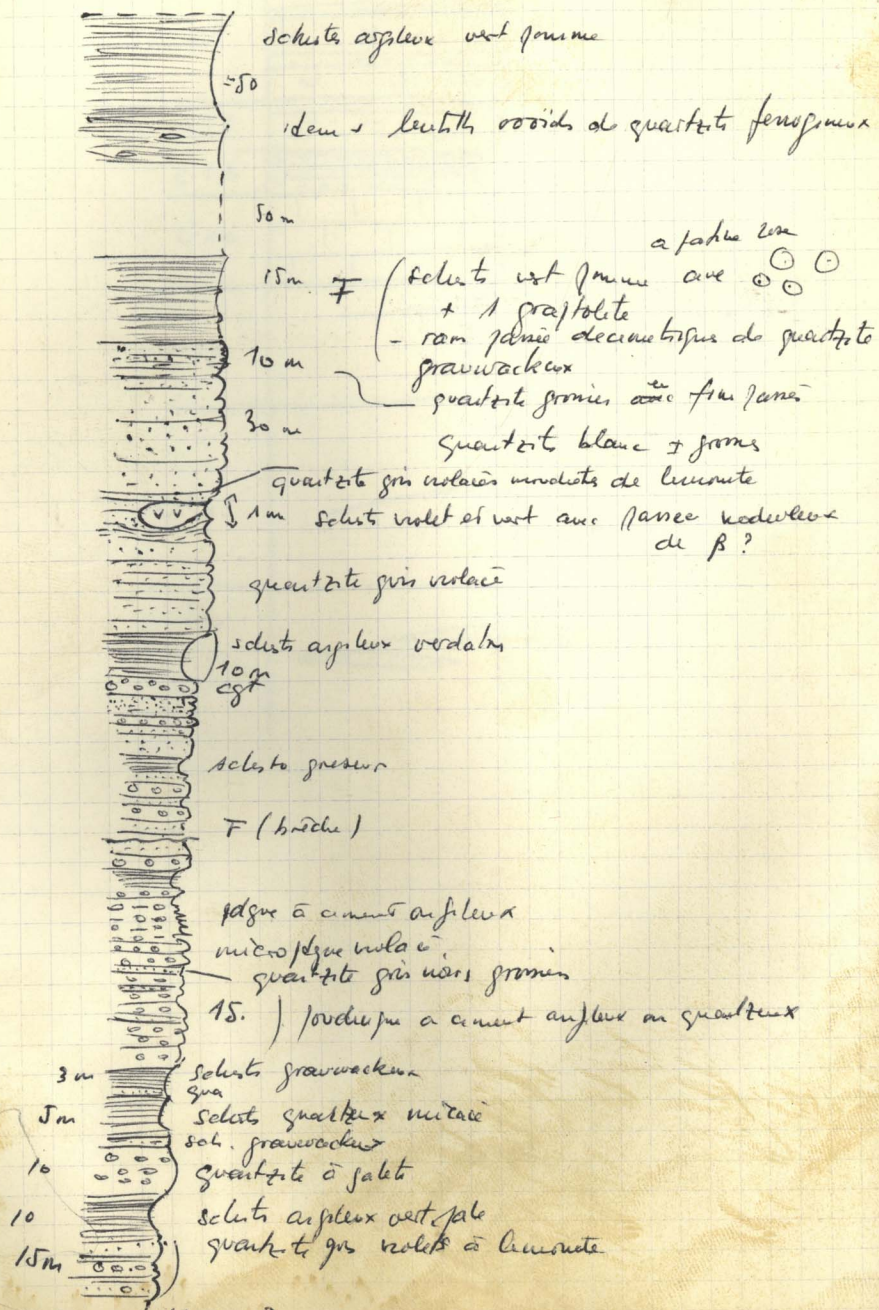 schistes argileux vert pomme
≈50
idem + lentilles ovoïds de quartzite ferrugineux
50 m
a patine
15 m F schists vert pomme avec
+ 1 graptolite
- passée decimetrique de quartzite
10 m grauwackeux
quartzite grossier fin
30 m
quartzite blanc ± grossier
quartzite gris violacés de limonite
1 m schists violet et vert avec passée noduleux
de β ?
quartzite gris violacé
schists argileux verdatre
10 m
cgt
schisto greseux
F (brèche)
pdgue à ciment argileux
micropdgue violacé
quartzite gris noirs grossier
15. poudingue a ciment argileux ou quartzeux
3 m schists grauwackeux
qua
5 m schists quartzeux micacé
sch. grauwackeux
10 quartzite à galets
10 schists argileux vert pale
15 m quartzite gris violets à limonite